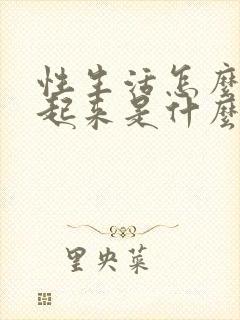 性生活怎麼
起来是什麼
里央菜